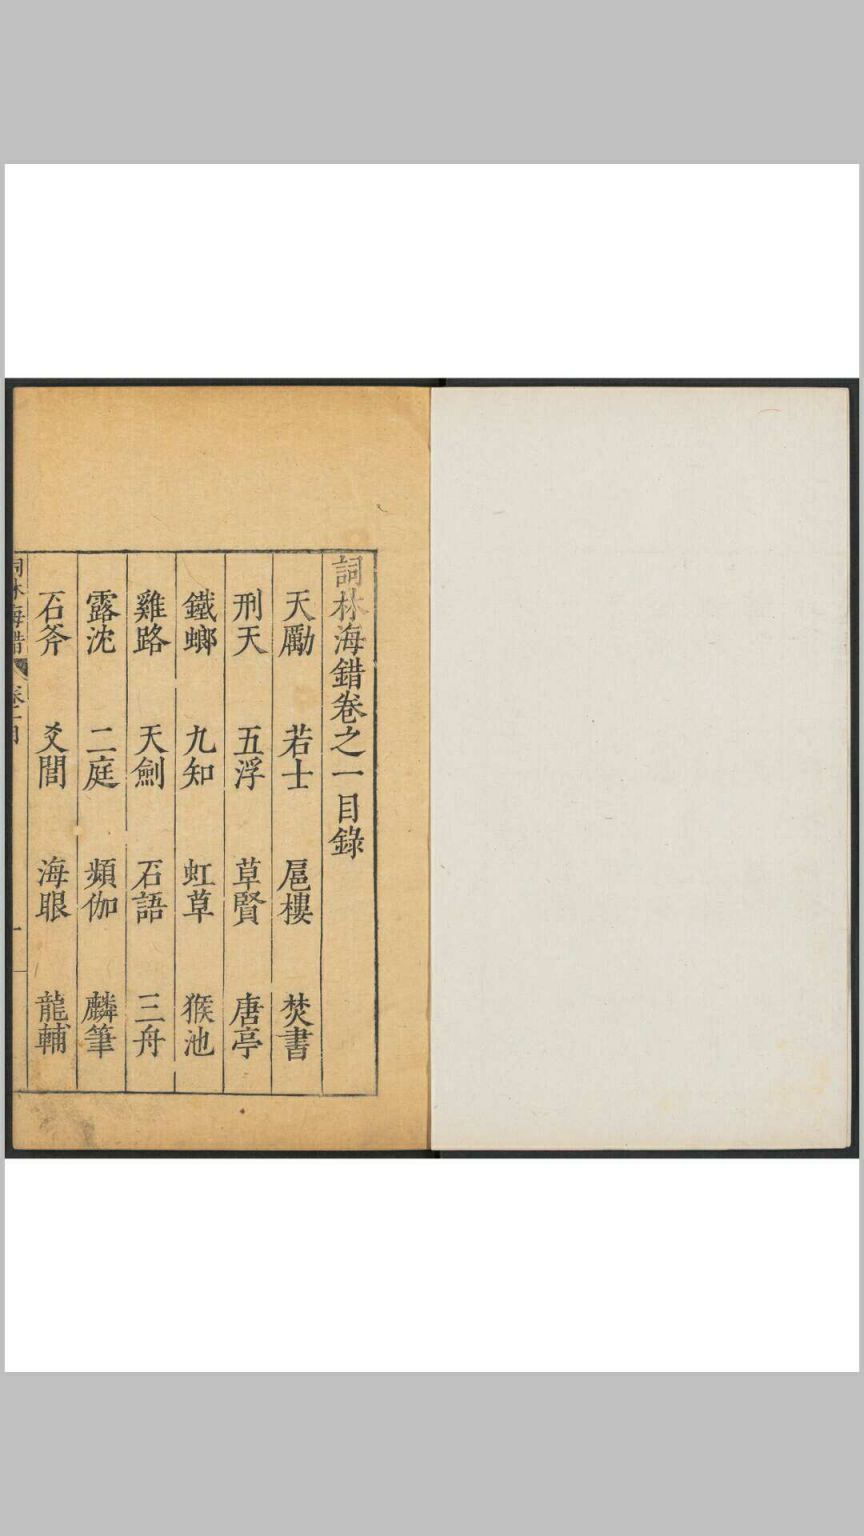 詞林海錯卷之一目錄
天勵 若士 扈樓 焚書
刑天 五浮 草賢 唐亭
鐵螂 九知 虹草 猴池
雞路 天劍 石語 三舟
露沈 二庭 頻伽 麟筆
石斧 爻閭 海眼 龍輔
詞林海錯 一